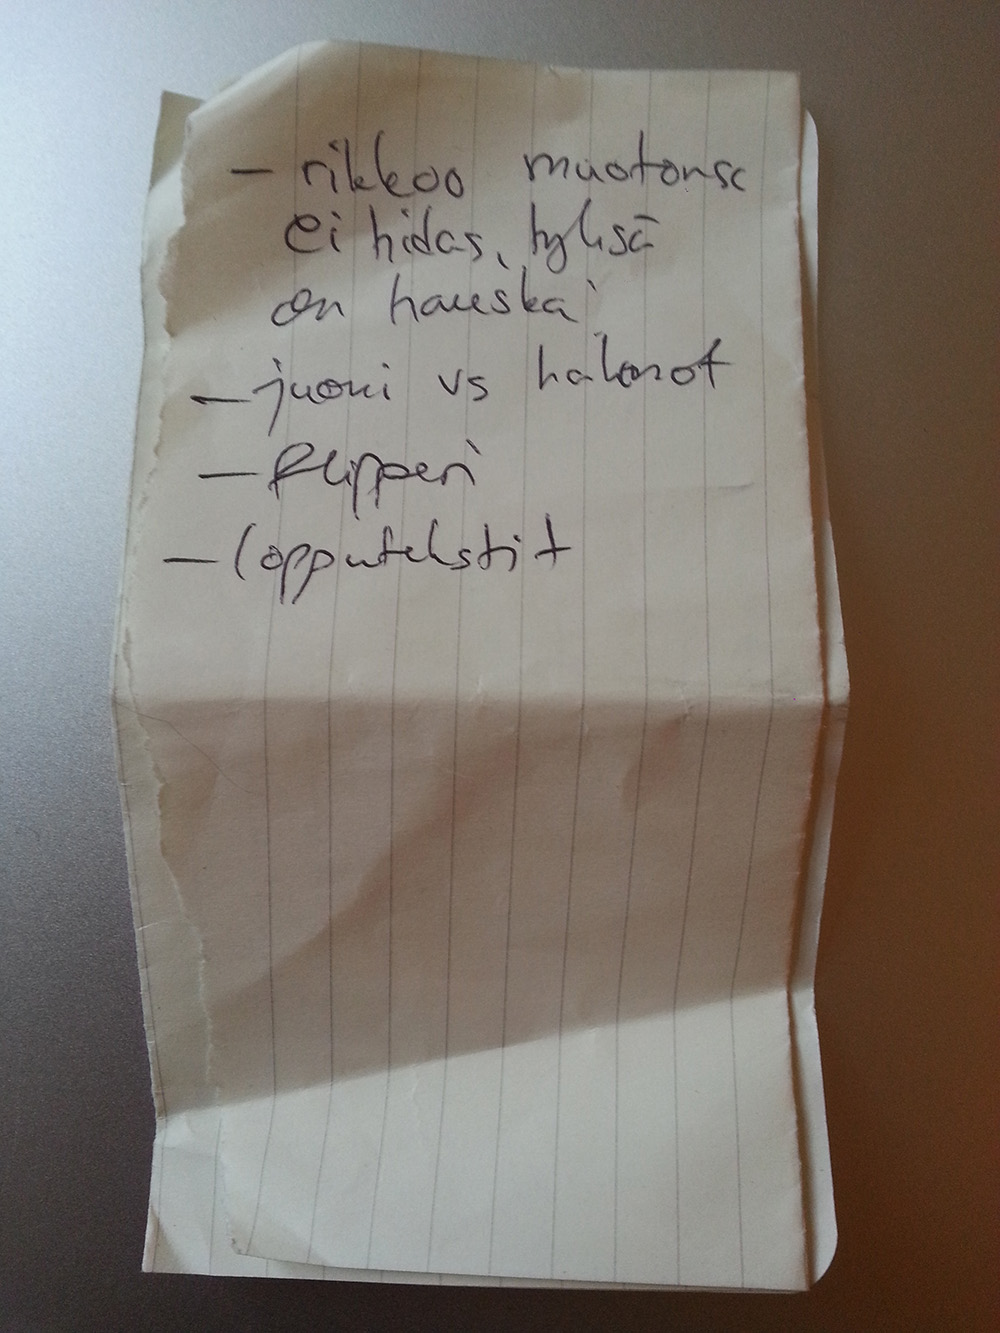 - rikkoo muotonsa
ei hidas, tylsä
on hauska
- juoni vs halonot
- flipperi
- lopputekstit